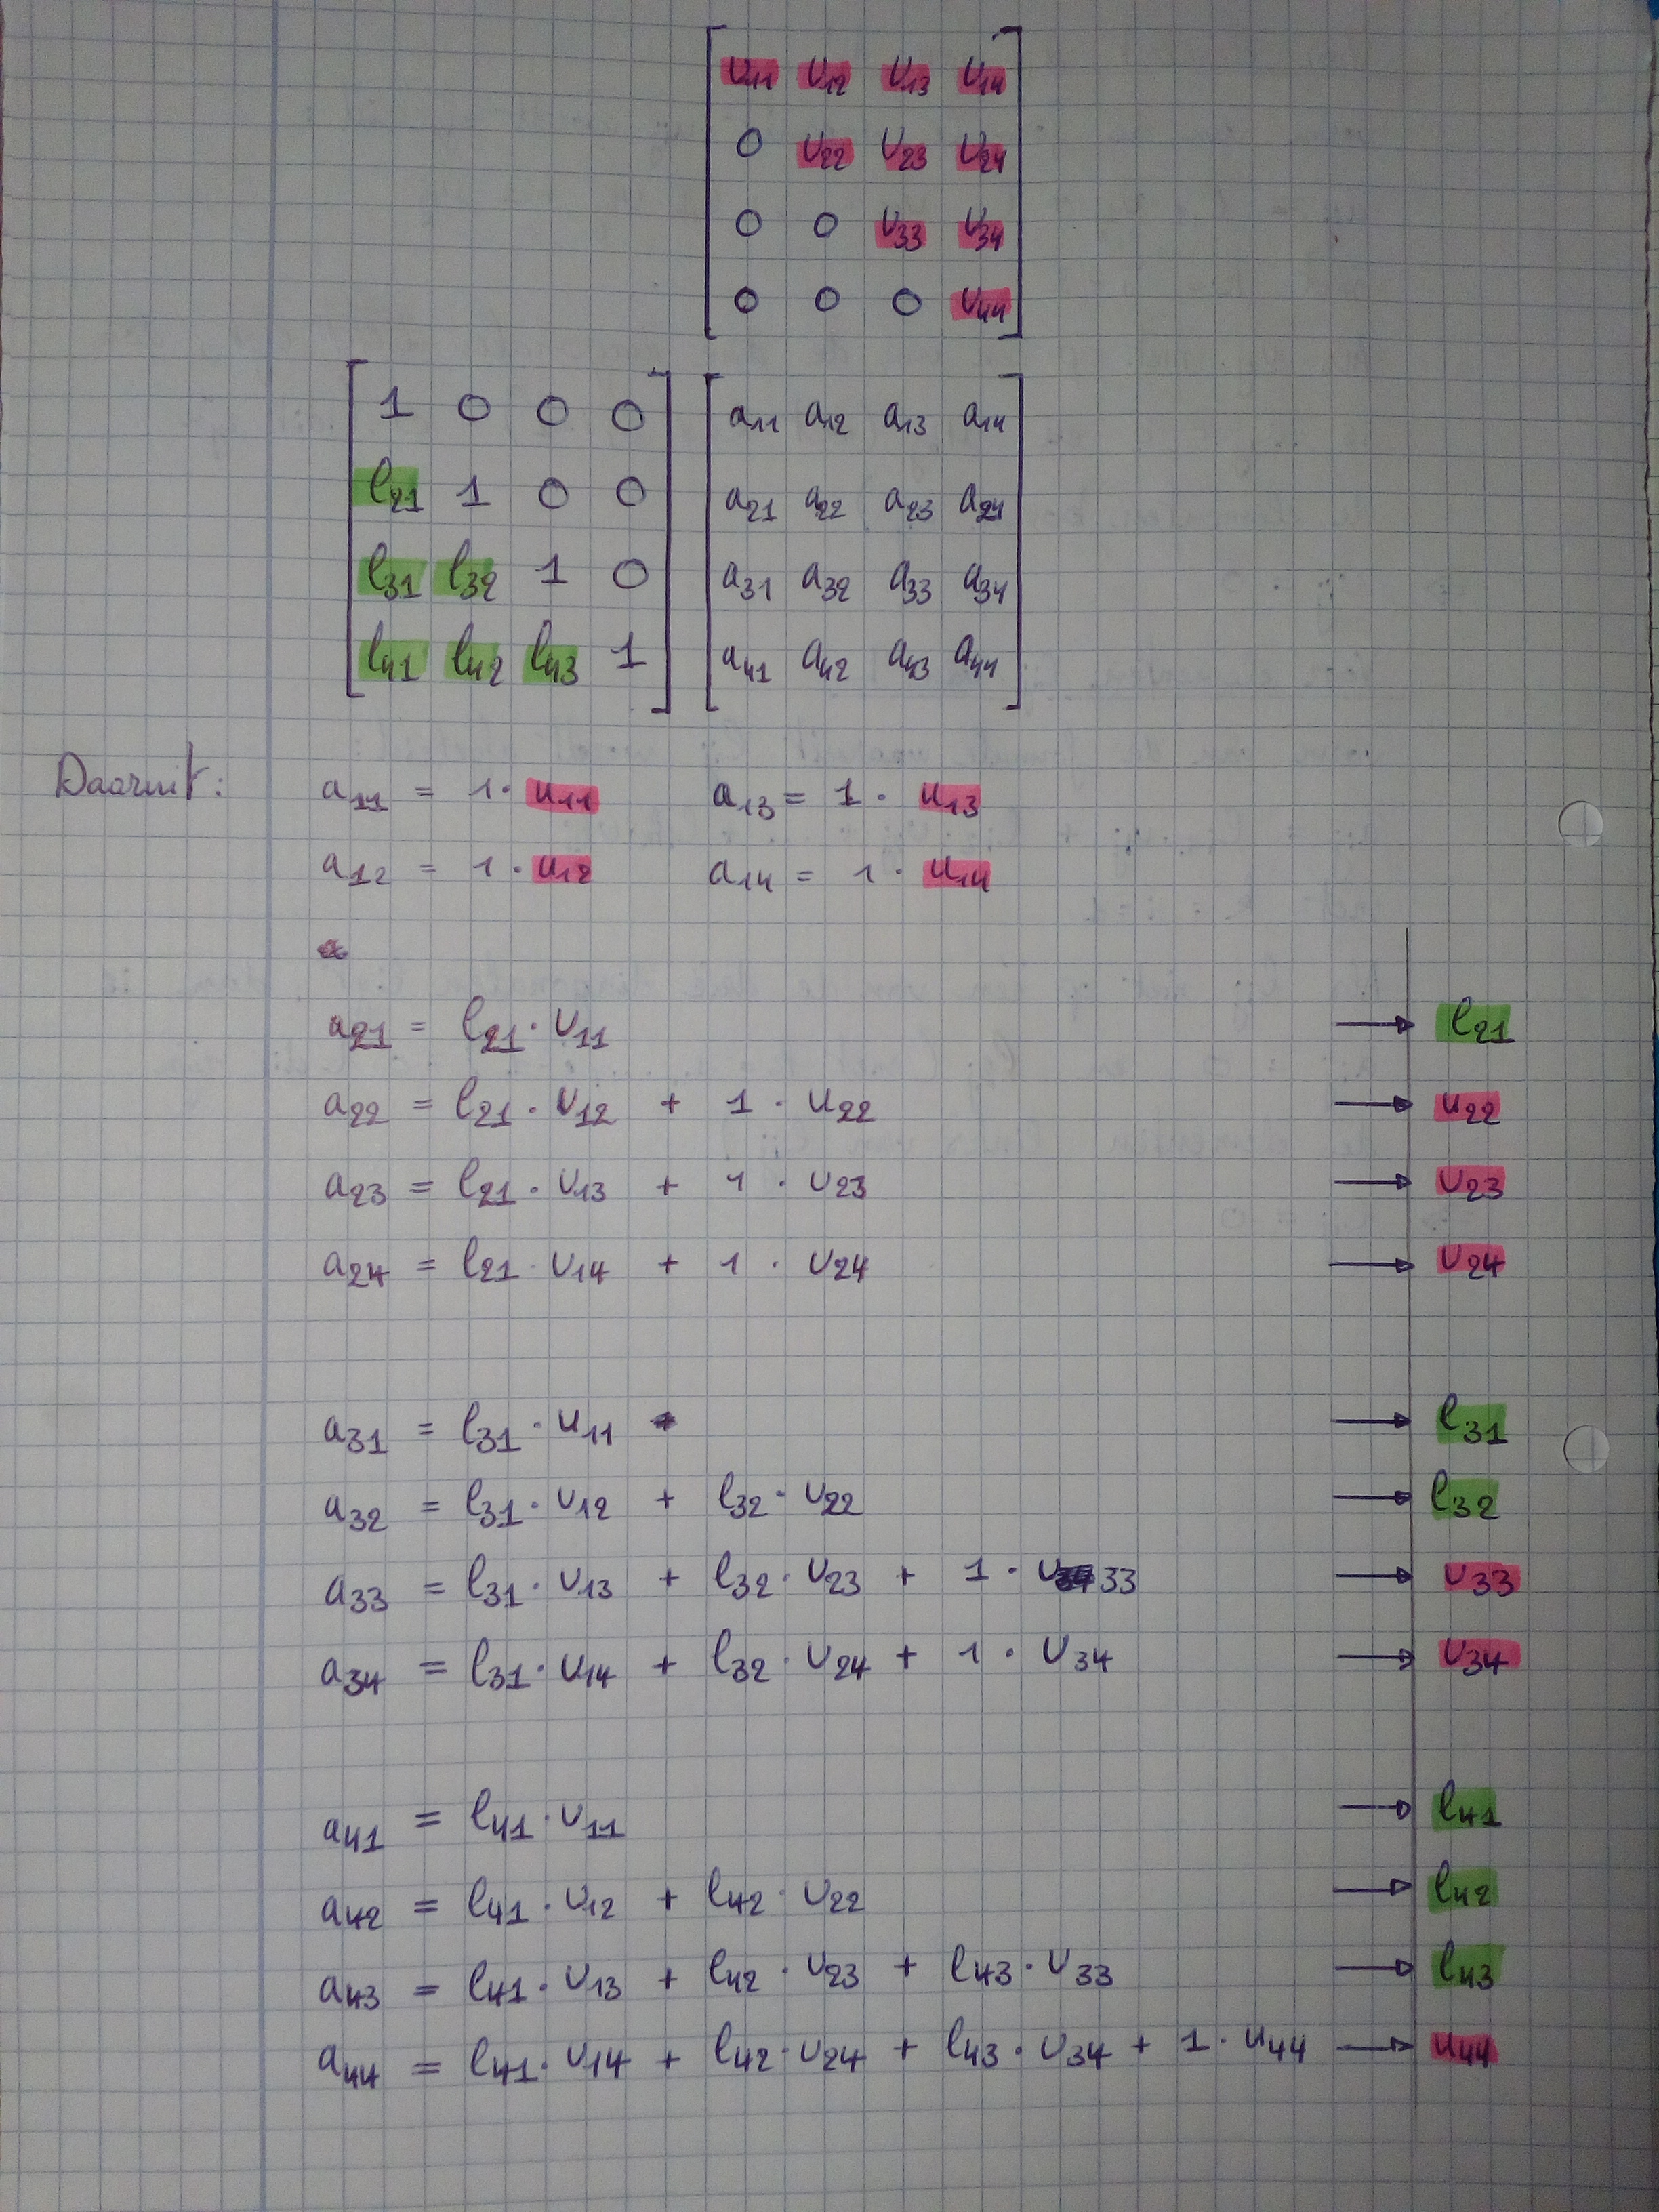 u₁₁ u₁₂ u₁₃ u₁₄
0 u₂₂ u₂₃ u₂₄
0 0 u₃₃ u₃₄
0 0 0 u₄₄
1 0 0 0 a₁₁ a₁₂ a₁₃ a₁₄
l₂₁ 1 0 0 a₂₁ a₂₂ a₂₃ a₂₄
l₃₁ l₃₂ 1 0 a₃₁ a₃₂ a₃₃ a₃₄
l₄₁ l₄₂ l₄₃ 1 a₄₁ a₄₂ a₄₃ a₄₄
Daaruit: a₁₁ = 1 · u₁₁ a₁₃ = 1 · u₁₃
a₁₂ = 1 · u₁₂ a₁₄ = 1 · u₁₄
a₂₁ = l₂₁ · u₁₁ → l₂₁
a₂₂ = l₂₁ · u₁₂ + 1 · u₂₂ → u₂₂
a₂₃ = l₂₁ · u₁₃ + 1 · u₂₃ → u₂₃
a₂₄ = l₂₁ · u₁₄ + 1 · u₂₄ → u₂₄
a₃₁ = l₃₁ · u₁₁ → l₃₁
a₃₂ = l₃₁ · u₁₂ + l₃₂ · u₂₂ → l₃₂
a₃₃ = l₃₁ · u₁₃ + l₃₂ · u₂₃ + 1 · u₃₃ → u₃₃
a₃₄ = l₃₁ · u₁₄ + l₃₂ · u₂₄ + 1 · u₃₄ → u₃₄
a₄₁ = l₄₁ · u₁₁ → l₄₁
a₄₂ = l₄₁ · u₁₂ + l₄₂ · u₂₂ → l₄₂
a₄₃ = l₄₁ · u₁₃ + l₄₂ · u₂₃ + l₄₃ · u₃₃ → l₄₃
a₄₄ = l₄₁ · u₁₄ + l₄₂ · u₂₄ + l₄₃ · u₃₄ + 1 · u₄₄ → u₄₄